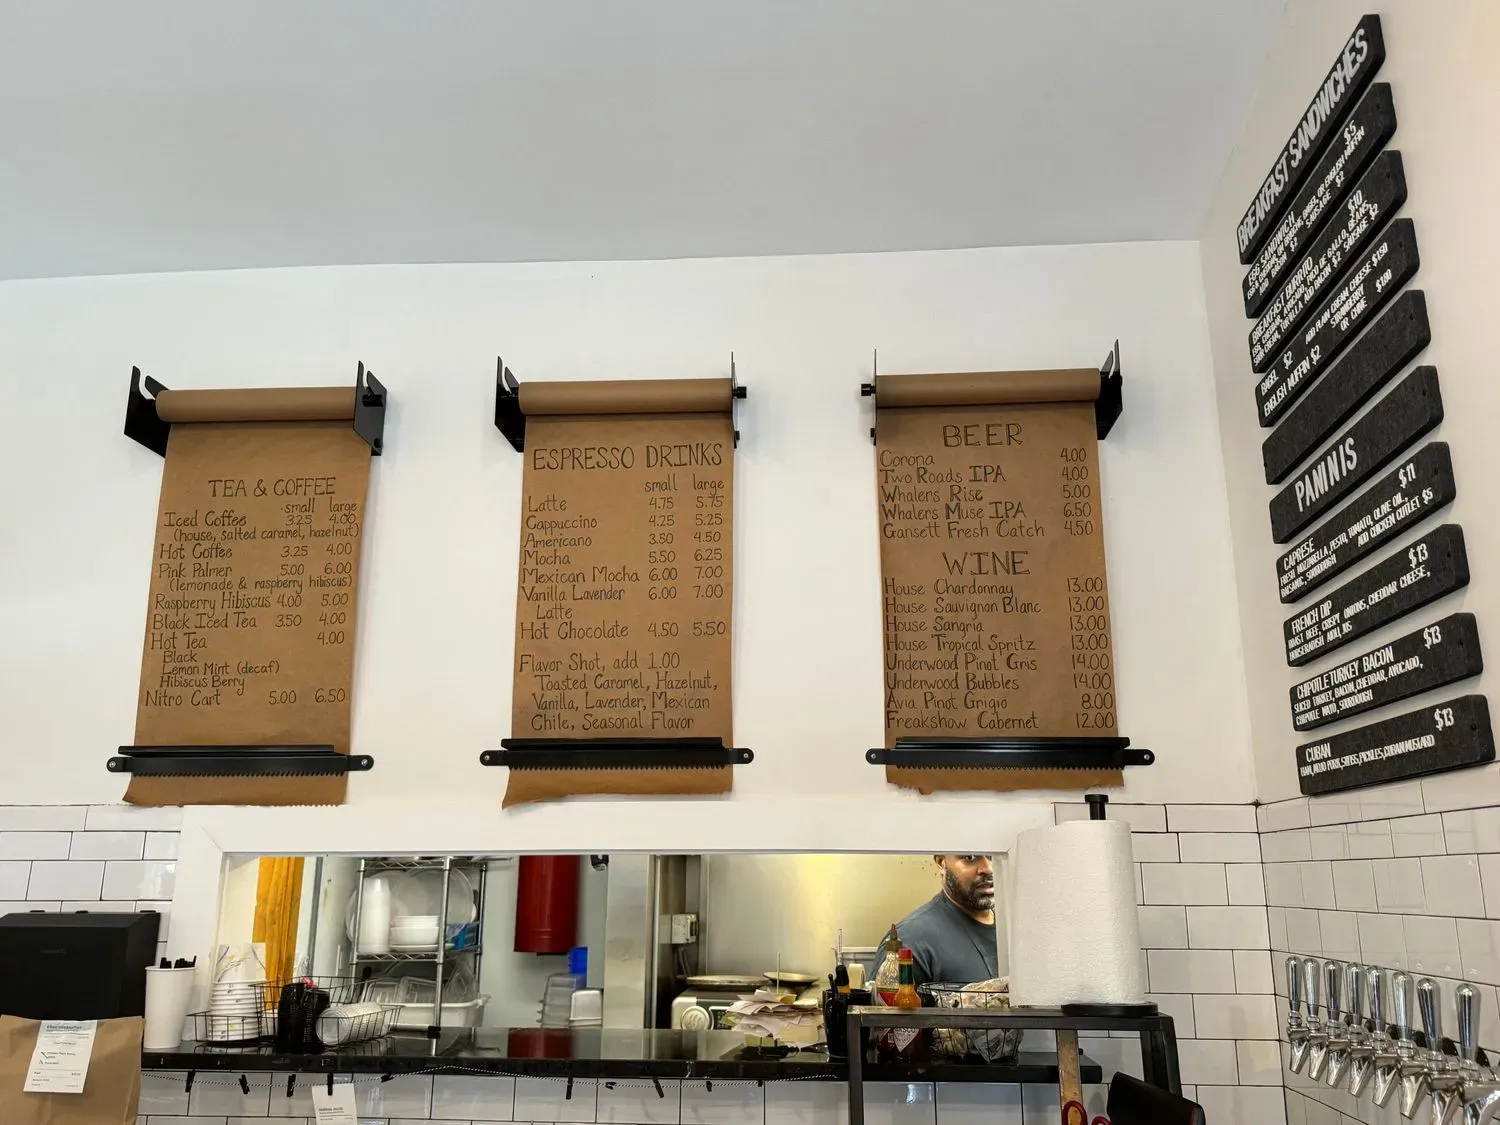 TEA & COFFEE
small large
Iced Coffee 3.25 4.00
(house, salted caramel, hazelnut)
Hot Coffee 3.25 4.00
Pink Palmer 5.00 6.00
(lemonade & raspberry hibiscus)
Raspberry Hibiscus 4.00 5.00
Black Iced Tea 3.50 4.00
Hot Tea 4.00
Black
Lemon Mint (decaf)
Hibiscus Berry
Nitro Cart 5.00 6.50
ESPRESSO DRINKS
small large
Latte 4.75 5.75
Cappuccino 4.25 5.25
Americano 3.50 4.50
Mocha 5.50 6.25
Mexican Mocha 6.00 7.00
Vanilla Lavender 6.00 7.00
Latte
Hot Chocolate 4.50 5.50
Flavor Shot, add 1.00
Toasted Caramel, Hazelnut,
Vanilla, Lavender, Mexican
Chile, Seasonal Flavor
BEER
Corona 4.00
Two Roads IPA 4.00
Whalers Rise 5.00
Whalers Muse IPA 6.50
Gansett Fresh Catch 4.50
WINE
House Chardonnay 13.00
House Sauvignon Blanc 13.00
House Sangria 13.00
House Tropical Spritz 13.00
Underwood Pinot Gris 14.00
Underwood Bubbles 14.00
Avia Pinot Grigio 8.00
Freakshow Cabernet 12.00
BREAKFAST SANDWICHES
EGG SANDWICH $5
BAGEL OR ENGLISH MUFFIN
ADD BACON $2 SAUSAGE $2
BREAKFAST BURRITO $10
EGG, CHEDDAR, AVOCADO, PICO DE GALLO, BEANS,
SOUR CREAM, TORTILLA ADD BACON $2 SAUSAGE $2
BAGEL $2 ADD PLAIN CREAM CHEESE $1.50
ENGLISH MUFFIN $2 STRAWBERRY
OR CHIVE $1.80
PANINIS
CAPRESE $11
FRESH MOZZARELLA, PESTO, TOMATO, OLIVE OIL,
BALSAMIC, SOURDOUGH ADD CHICKEN CUTLET $5
FRENCH DIP $13
ROAST BEEF, CRISPY ONIONS, CHEDDAR CHEESE,
HORSERADISH AIOLI, JUS
CHIPOTLE TURKEY BACON $13
SLICED TURKEY, BACON, CHEDDAR, AVOCADO,
CHIPOTLE MAYO, SOURDOUGH
CUBAN $13
HAM, MOJO PORK, SWISS, PICKLES, CUBAN MUSTARD